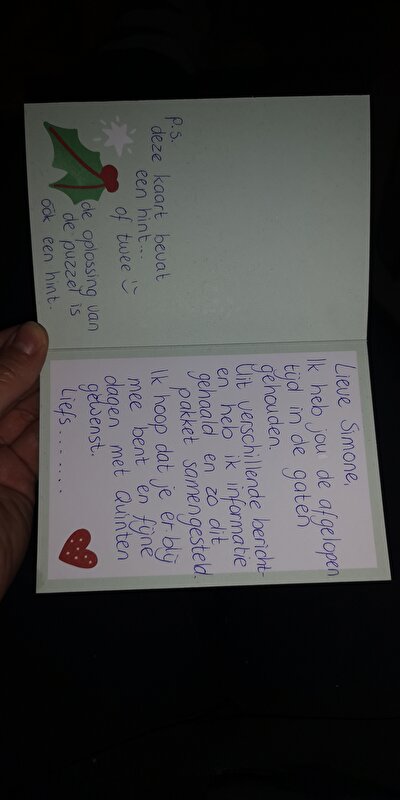 p.s.
deze kaart bevat
een hint...
of twee :)
de oplossing van
de puzzel is
ook een hint.
Lieve Simone,
Ik heb jou de afgelopen
tijd in de gaten
gehouden.
Uit verschillende bericht-
en heb ik informatie
gehaald en zo dit
pakket samengesteld.
Ik hoop dat je er blij
mee bent en fijne
dagen met Quinten
gewenst.
Liefs.......